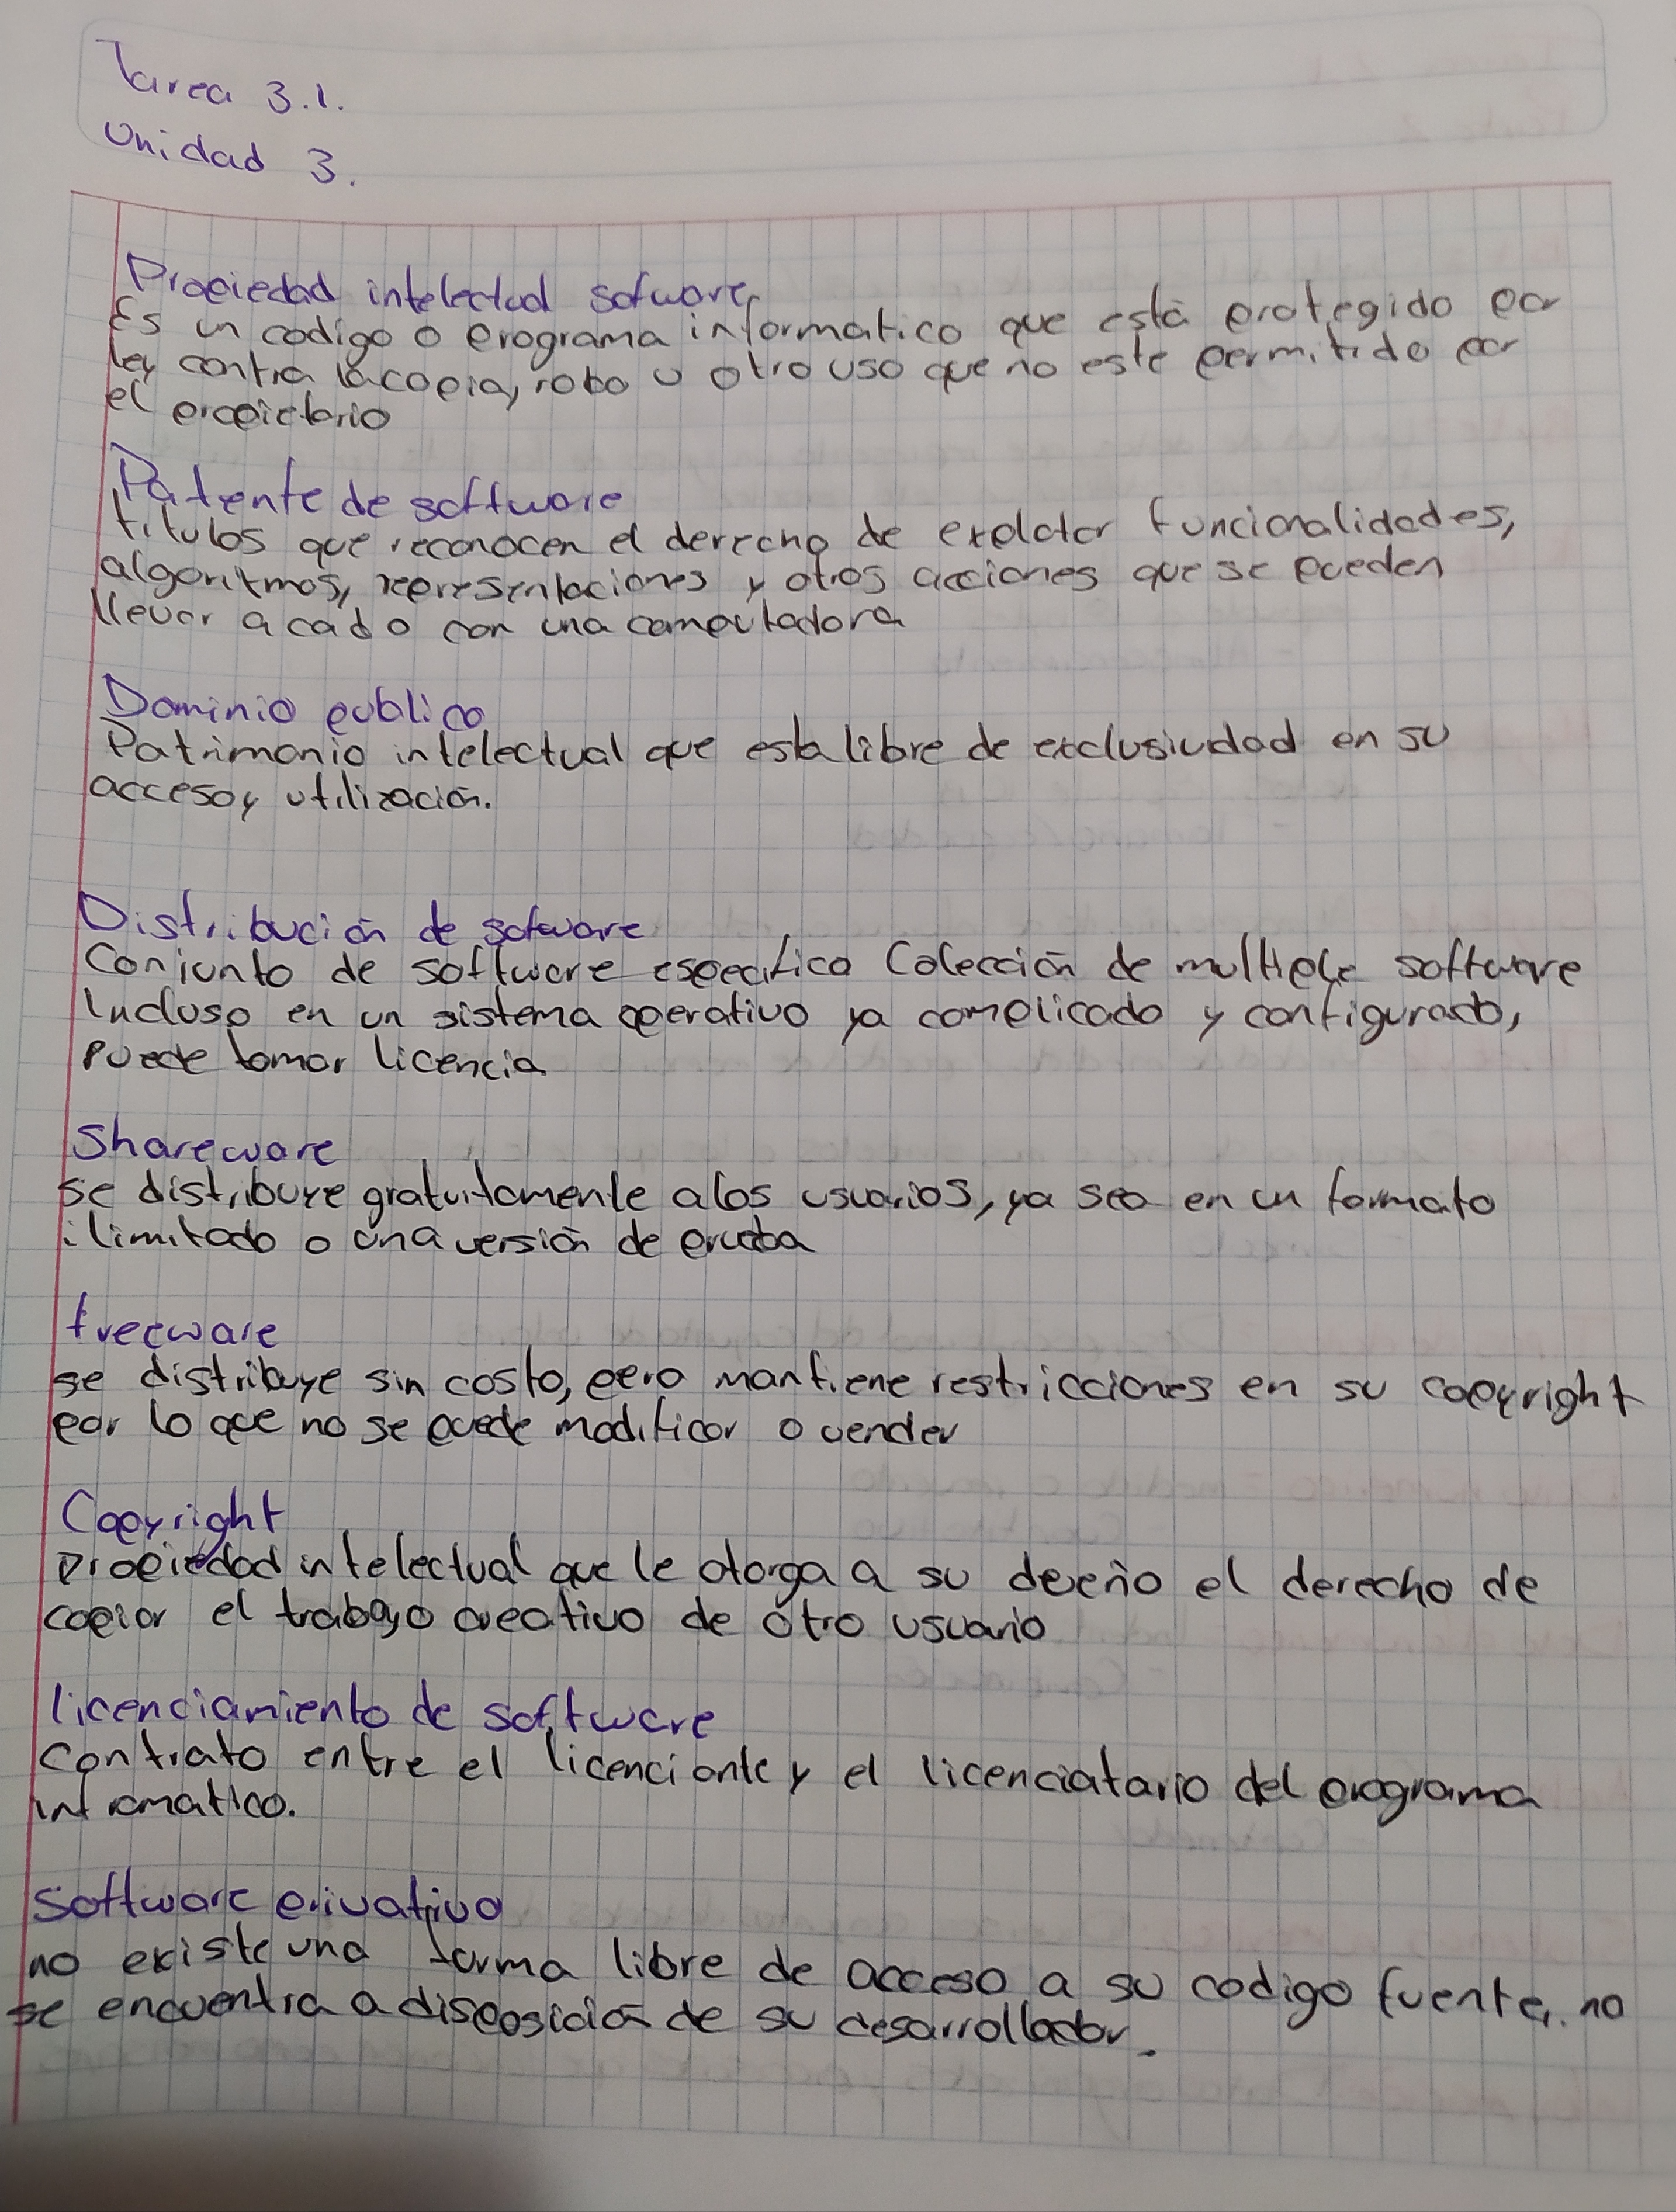 Tarea 3.1.
Unidad 3.
Propiedad intelectual sofware
Es un codigo o programa informatico que está protegido por
ley contra la copia, robo u otro uso que no este permitido por
el propietario
Patente de software
titulos que reconocen el derecho de explotar funcionalidades,
algoritmos, representaciones y otros acciones que se pueden
llevar a cado con una computadora
Dominio publico
Patrimonio intelectual que esta libre de exclusividad en su
acceso y utilización.
Distribución de sofware
Conjunto de software especifico Colección de multiple software
Incluso en un sistema operativo ya complicado y configurado,
puede tomar licencia
Shareware
se distribuye gratuitamente a los usuarios, ya sea en un formato
ilimitado o una versión de prueba
freeware
se distribuye sin costo, pero mantiene restricciones en su copyright
por lo que no se puede modificar o vender
Copyright
propiedad intelectual que le otorga a su el derecho de
copiar el trabajo creativo de otro usuario
licenciamiento de software
Contrato entre el licenciante y el licenciatario del programa
informatico.
Software privativo
no existe una forma libre de acceso a su codigo fuente, no
se encuentra a disposición de su desarrollador.